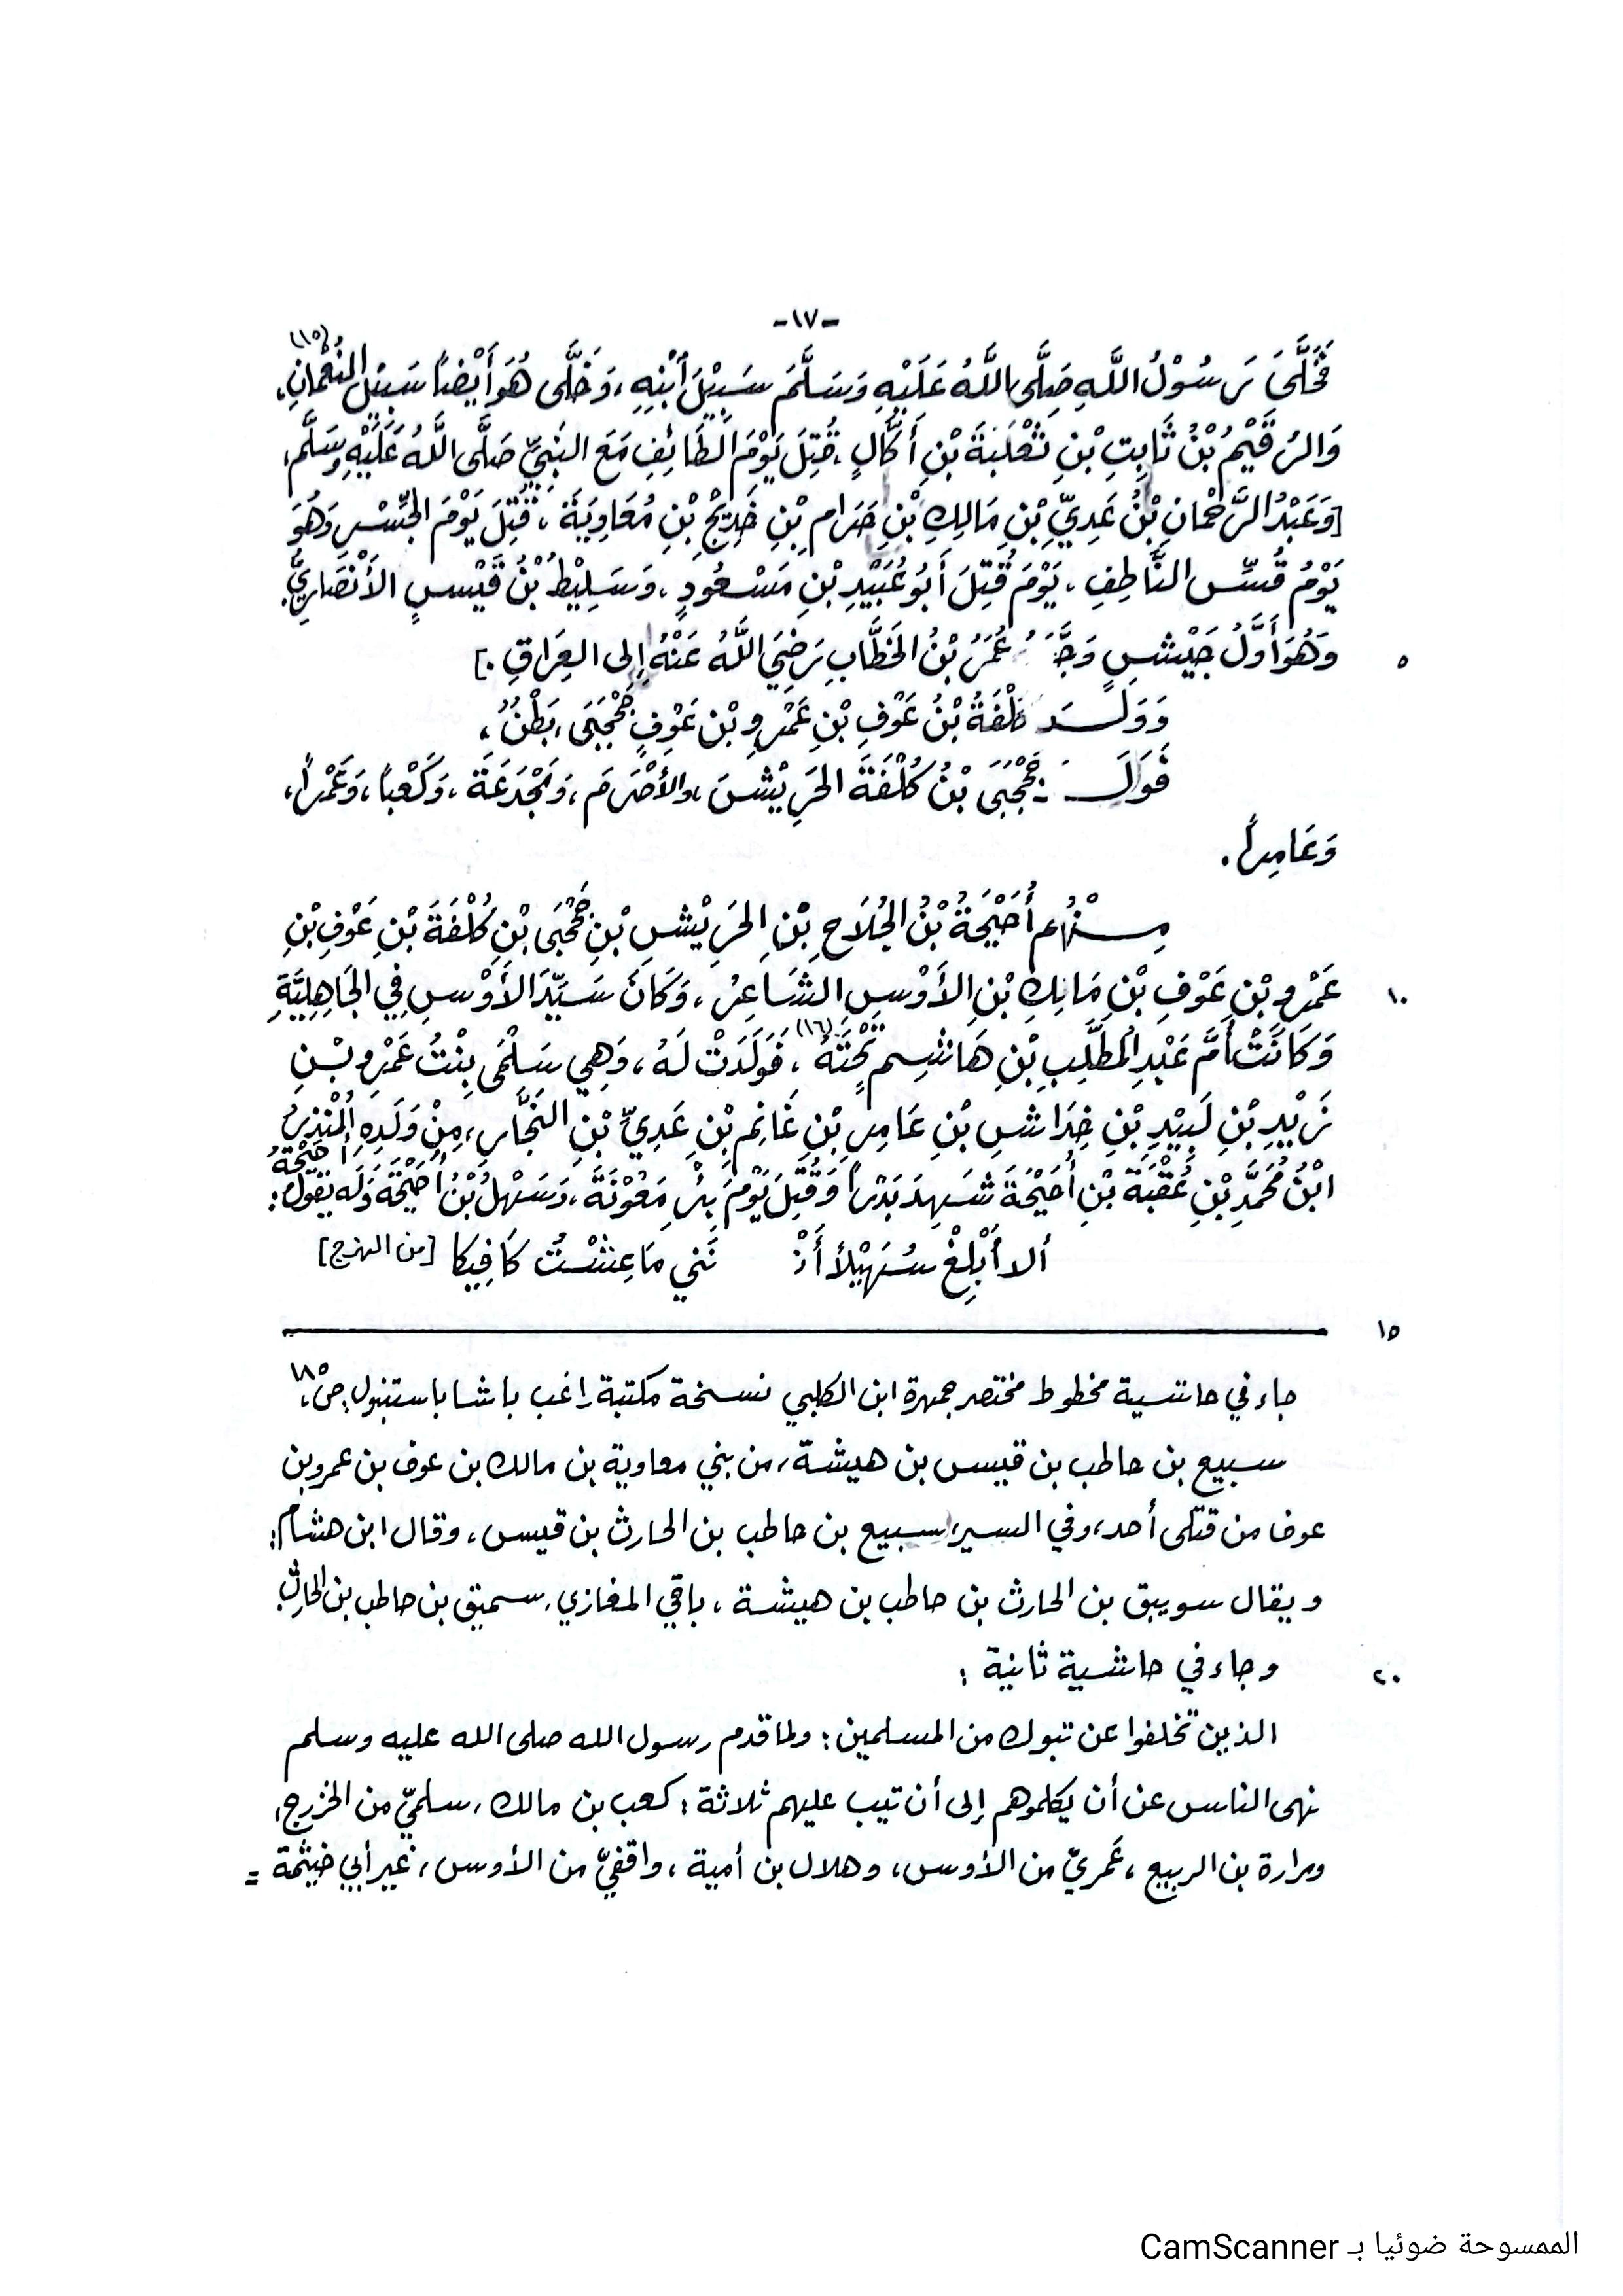 -١٧-
فَخَلَّىَ رَسُوْلُ اللَّهِ صَلَّى اللَّهُ عَلَيْهِ وَسَلَّمَ سَبِيْلَ ٱبْنِهِ، وَخَلَّى هُوَ أَيْضاً سَبِيْلَ النُعْمَانِ، (١٥)
وَالرُقَيْمُ بْنُ ثَابِتِ بْنِ ثَعْلَبَةَ بْنِ أَكَّالٍ، قُتِلَ يَوْمَ الطَائِفِ مَعَ النَبِيِّ صَلَّى اللَّهُ عَلَيْهِ وَسَلَّمَ،
[وَعَبْدُ الرَّحْمَانِ بْنُ عَدِيِّ بْنِ مَالِكِ بْنِ حَرَامِ بْنِ خَدِيْجِ بْنِ مُعَاوِيَةَ، قُتِلَ يَوْمَ الجَّسْرِ وَهُوَ
يَوْمُ قُسِّ النَّاطِفِ، يَوْمَ قُتِلَ أَبُو عُبَيْدِ بْنِ مَسْعُودٍ، وَسَلِيْطُ بْنُ قَيْسٍ الأَنْصَارِيُّ.
وَهُوَ أَوَّلُ جَيْشٍ عُمَرُ بْنُ الخَطَّابِ رَضِيَ اللَّهُ عَنْهُ إِلى العِرَاقِ.] ٥
وَوَلَدَ كُلْفَةُ بْنُ عَوْفِ بْنِ عَمْرِو بْنِ عَوْفٍ جَحْجَبَى، بَطْنٌ،
فَوَلَدَ جَحْجَبَى بْنُ كُلْفَةَ الحَرِيْشَ، والأَصْرَمَ، وَمَجْدَعَةَ، وَكَعْباً، وَعَمْراً،
وَعَامِراً.
مِنْهُم أُحَيْحَةُ بْنُ الجُلَاحِ بْنِ الحَرِيْشِ بْنِ جَحْجَبَى بْنِ كُلْفَةَ بْنِ عَوْفِ بْنِ
عَمْرِو بْنِ عَوْفِ بْنِ مَالِكِ بْنِ الأَوْسِ الشَاعِرُ، وَكَانَ سَيِّدَ الأَوْسِ فِي الجَاهِلِيَّةِ ١٠
وَكَانَتْ أُمُّ عَبْدِ المُطَّلِبِ بْنِ هَاشِمٍ تَحْتَهُ (١٦)، فَوَلَدَتْ لَهُ، وَهِي سَلْمَى بِنْتُ عَمْرِو بْنِ
زَيْدِ بْنِ لَبِيْدِ بْنِ خِدَاشِ بْنِ عَامِرِ بْنِ غَانِمِ بْنِ عَدِيِّ بْنِ النَجَّارِ، مِنْ وَلَدِهِ المُنْذِرُ
ابْنُ مُحَمَّدِ بْنِ عُقْبَةَ بْنِ أُحَيْحَةَ شَهِدَ بَدْراً وَقُتِلَ يَوْمَ بِئْرِ مَعُوْنَةَ، وَسَهْلُ بْنُ أُحَيْحَةَ وَلَه يَقولُ أُحَيْحَةُ:
ألا أَبْلِغْ سُهَيْلاً أَنْ نَنِي مَا عِشْتُ كَافِيكا [من الهزج]
١٥
جاء في حاشية مخطوط مختصر جمهرة ابن الكلبي نسخة مكتبة راغب باشا باستنبول، ص، ١٨٥
سبيع بن حاطب بن قيس بن هيشة، من بني معاوية بن مالك بن عوف بن عمرو بن
عوف من قتلى أحد، وفي السير، سبيع بن حاطب بن الحارث بن قيس، وقال ابن هشام:
ويقال سويبق بن الحارث بن حاطب بن هيشة، باقي المغازي، سميق بن حاطب بن الحارث.
وجاء في حاشية ثانية : ٢٠
الذين تخلفوا عن تبوك من المسلمين: ولما قدم رسول الله صلى الله عليه وسلم
نهى الناس عن أن يكلموهم إلى أن تيب عليهم ثلاثة: كعب بن مالك، سلميّ من الخزرج،
ومرارة بن الربيع، عَمريّ من الأوس، وهلال بن أمية، واقفيّ من الأوس، غير أبي خيثمة =
الممسوحة ضوئيا بـ CamScanner